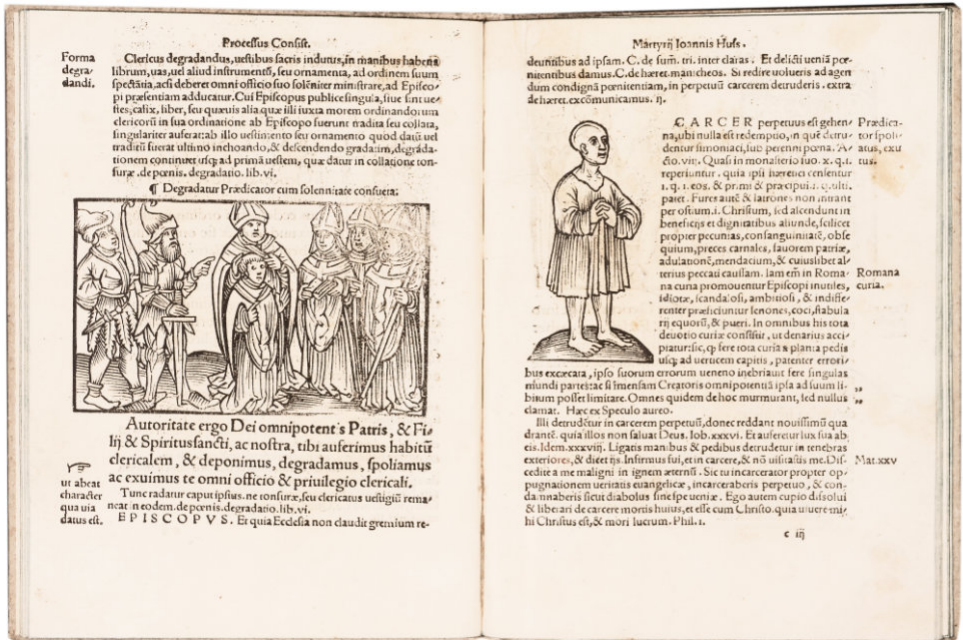 Processus Consist.
Forma
degra-
dandi.
Clericus degradandus, uestibus sacris indutus, in manibus habens
librum, uas, uel aliud instrumentũ, seu ornamenta, ad ordinem suum
spectãtia, acsi deberet omni officio suo solẽniter ministrare, ad Episco-
pi præsentiam adducatur. Cui Episcopus publice singula, siue sint ue-
stes, calix, liber, seu quæuis alia, quæ illi iuxta morem ordinandorum
clericorũ in sua ordinatione ab Episcopo fuerunt tradita seu collata,
singulariter auferat: ab illo uestimento seu ornamento quod datũ uel
traditũ fuerat ultimo inchoando, & descendendo gradatim, degrada-
tionem continuet usq; ad primã uestem, quæ datur in collatione ton-
suræ. de pœnis. degradatio. lib. vi.
¶ Degradatur Prædicator cum solennitate consueta:
Autoritate ergo Dei omnipotentis Patris, & Fi-
lij & Spiritussancti, ac nostra, tibi auferimus habitũ
clericalem, & deponimus, degradamus, spoliamus
ac exuimus te omni officio & priuilegio clericali.
ut abeat
character
qua uia
datus est.
Tunc radatur caput ipsius, ne tonsuræ, seu clericatus uestigiũ rema-
neat in eodem. de pœnis. degradatio. lib. vi.
EPISCOPVS. Et quia Ecclesia non claudit gremium re-
Martyrij Ioannis Huss.
deuntibus ad ipsam. C. de sum. tri. inter claras. Et delicti ueniã pœ-
nitentibus damus. C. de hæret. manicheos. Si redire uolueris ad agen
dum condignã pœnitentiam, in perpetuũ carcerem detruderis. extra
de hæret. excõmunicamus. ij.
CARCER perpetuus est gehen-
na, ubi nulla est redemptio, in quẽ detru-
dentur simoniaci, sub perenni pœna. A-
cto. viij. Quasi in monasterio suo. x. q. 1.
reperiuntur. quia ipsi hæretici censentur
1. q. 1. eos. & primi & præcipui. 1. q. ulti.
patet. Fures autẽ & latrones non intrant
per ostium. i. Christum, sed ascendunt in
beneficijs et dignitatibus aliunde, scilicet
propter pecunias, consanguinitatẽ, obse
quium, preces carnales, fauorem patriæ,
adulationẽ, mendacium, & cuiuslibet al-
terius peccati causam. Iam em̃ in Roma-
na curia promouentur Episcopi inutiles,
idiotæ, scandalosi, ambitiosi, & indiffe-
renter præficiuntur lenones, coci, stabula
rij equorũ, & pueri. In omnibus his tota
deuotio curiæ consistit, ut denarius acci-
piatur: sic, q̃ fere tota curia a planta pedis
usq; ad uerticem capitis, patenter errori-
bus excæcata, ipso suorum errorum ueneno inebriauit fere singulas
mundi partes: ac si im̃ensam Creatoris omnipotentiã ipsa ad suum li-
bitum posset limitare. Omnes quidem de hoc murmurant, sed nullus
clamat. Hæc ex Speculo aureo.
Prædica-
tor spoli-
atus, exu
tus.
Romana
curia.
Illi detrudẽtur in carcerem perpetuũ, donec reddant nouissimũ qua
drantẽ. quia illos non saluat Deus. Iob. xxxvi. Et auferetur lux sua ab
eis. Idem. xxxviij. Ligatis manibus & pedibus detrudetur in tenebras
exteriores, & dicet ijs. Infirmus fui, et in carcere, & nõ uisitastis me. Dis-
cedite a me maligni in ignem æternũ. Sic tu incarcerator propter op-
pugnationem ueritatis euangelicæ, incarceraberis perpetuo, & con-
damnaberis sicut diabolus sine spe ueniæ. Ego autem cupio dissolui
& liberari de carcere mortis huius, et esse cum Christo. quia uiuere mi-
hi Christus est, & mori lucrum. Phil. 1.
Mat. xxv
c iij